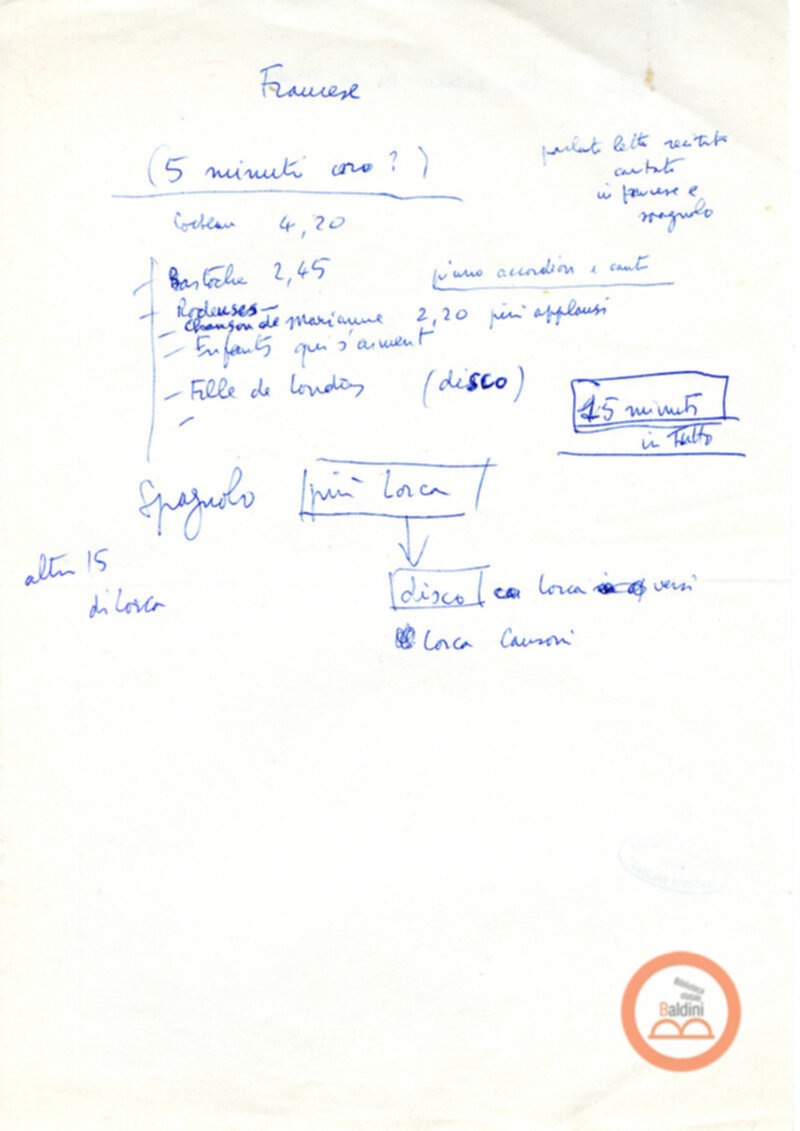 Francese
(5 minuti coro?)
parlato letto recitato
cantato
in francese e
spagnolo
Cocteau 4,20
Bastoche 2,45
piano accordion e canto
Rodeuses -
Chanson de Marianne 2,20 più applausi
Enfants qui s'aiment
Fille de Londres (disco)
15 minuti
in tutto
Spagnolo più Lorca
altri 15
di Lorca
disco Lorca versi
Lorca Canzoni
Biblioteca
statale
Baldini